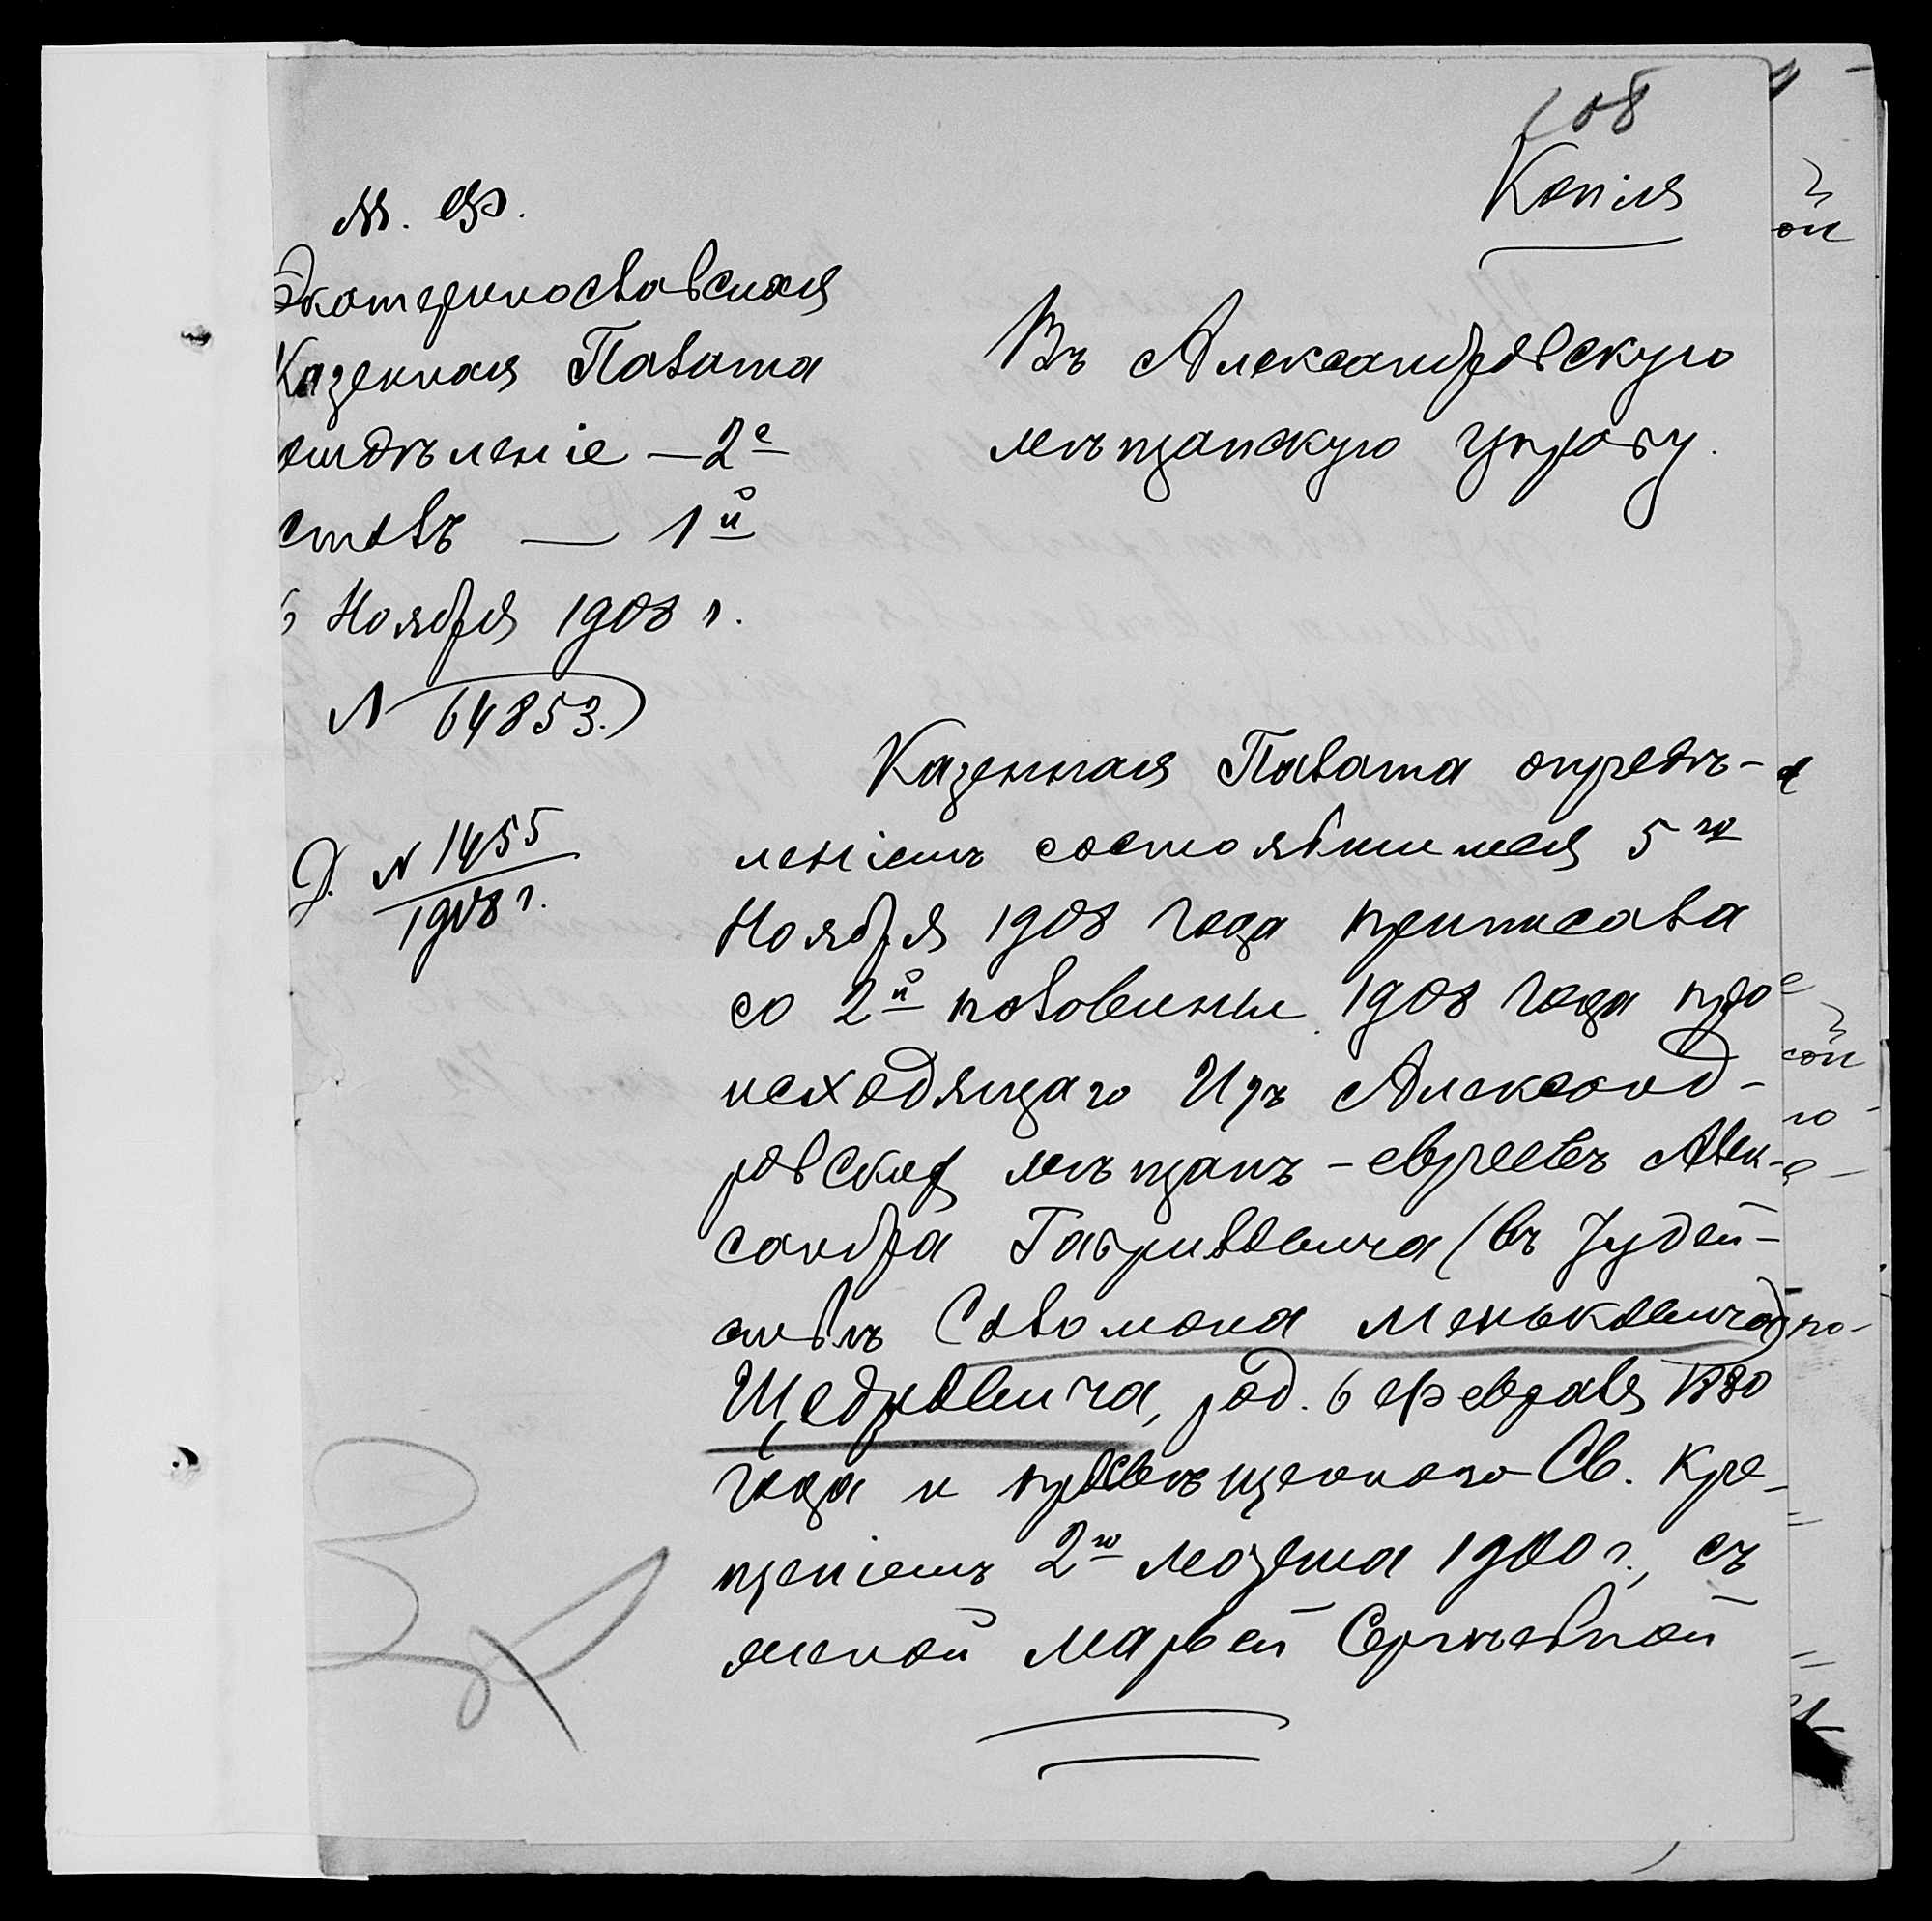 108
Копія
М. Ф.
Екатеринославская
Казенная Палата
отдѣленіе — 2е
столъ — 1й
6 Ноября 1908 г.
N 64853.
Д. N 1455
1908 г.
Въ Александровскую
мѣщанскую управу.
Казенная Палата опредѣ-
леніемъ состоявшимся 5го
Ноября 1908 года приписала
со 2й половины 1908 года про
исходящаго Изъ Александ-
ровских мѣщанъ-евреевъ Алек-
сандра Гавриловича (въ Іудей-
ствѣ Соломона Меньковича)
Щедровича, род. 6 февраля 1880
года и просвѣщеннаго Св. Кре-
щеніемъ 2го марта 1900 г., съ
женой Марьей Сергѣевной